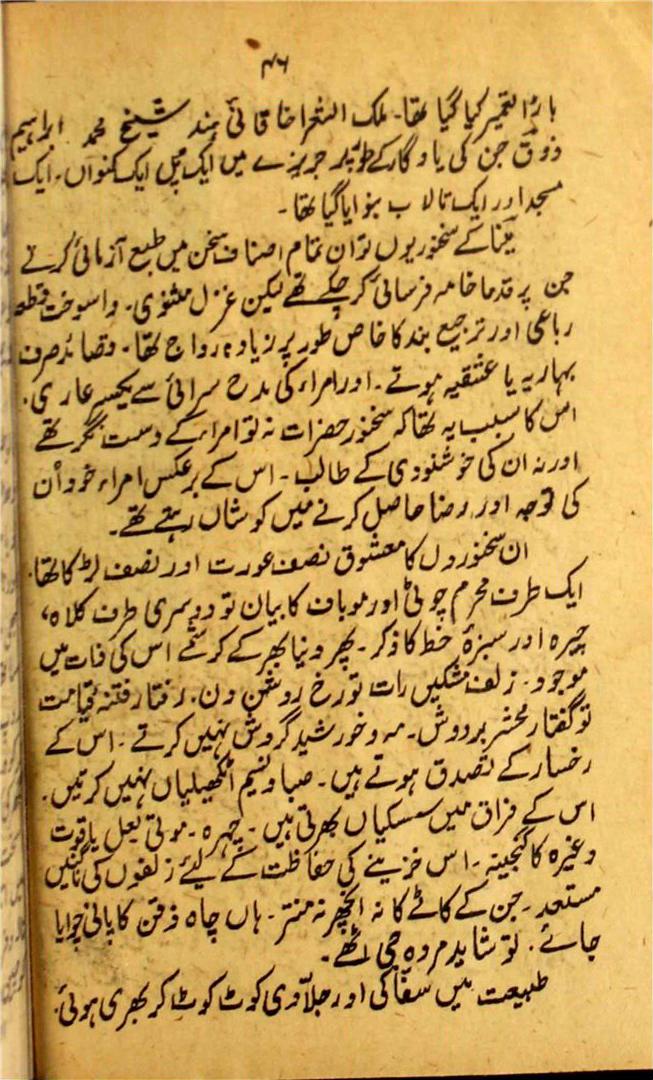 ۴۶
بازار تعمیر کیا گیا تھا۔ ملک الشعرا خاقانی ہند شیخ محمد ابراہیم
ذوق جن کی یادگار کے طور پر جزیرے میں ایک پل ایک کنواں۔ ایک
مسجد اور ایک تالاب بنوایا گیا تھا۔
مینا کے سخنوریوں تو ان تمام اصناف سخن میں طبع آزمائی کرتے
جن پر قدما خامہ فرسائی کر چکے تھے لیکن غزل مثنوی۔ واسوخت قطعہ
رباعی اور ترجیع بند کا خاص طور پر زیادہ رواج تھا۔ قصائد صرف
بہاریہ یا عشقیہ ہوتے۔ اور امراء کی مدح سرائی سے یکسر عاری۔
اس کا سبب یہ تھا کہ سخنور حضرات نہ تو امراء کے دست نگر تھے
اور نہ ان کی خوشنودی کے طالب۔ اس کے برعکس امراء خود اُن
کی توجہ اور رضا حاصل کرنے میں کوشاں رہتے تھے۔
ان سخنوروں کا معشوق نصف عورت اور نصف لڑکا تھا۔
ایک طرف محرم چوٹی اور موباف کا بیان تو دوسری طرف کلاہ،
چیرہ اور سبزۂ خط کا ذکر۔ پھر دنیا بھر کے کرشمے اس کی ذات میں
موجود۔ زلف مشکیں رات تو رخ روشن دن۔ رفتار فتنہ قیامت
تو گفتار محشر بر دوش۔ مہ و خورشید گردش نہیں کرتے۔ اس کے
رخسار کے تصدق ہوتے ہیں۔ صبا و نسیم اٹکھیلیاں نہیں کرتیں۔
اس کے فراق میں سسکیاں بھرتی ہیں۔ چہرہ۔ موتی لعل یاقوت
وغیرہ کا گنجینہ۔ اس خزینے کی حفاظت کے لیئے زلفوں کی ناگنیں
مستعد۔ جن کے کاٹے کا نہ انچھر نہ منتر۔ ہاں چاہ ذقن کا پانی چوایا
جائے۔ تو شاید مردہ جی اٹھے۔
طبیعت میں سفاکی اور جلّادی کوٹ کوٹ کر بھری ہوئی۔